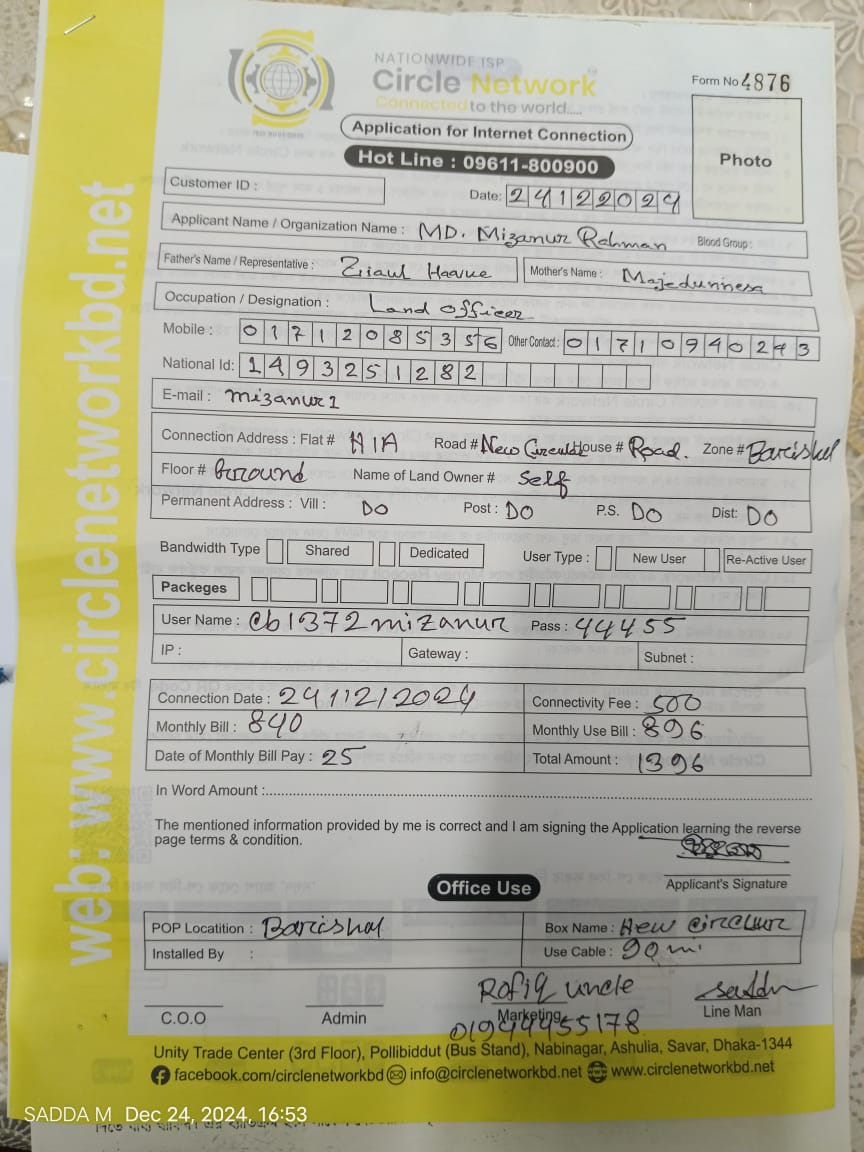 NATIONWIDE ISP
Circle Network
Connected to the world.....
Form No 4876
Application for Internet Connection
Hot Line : 09611-800900
Photo
Customer ID :
Date: 24122024
Applicant Name / Organization Name : MD. Mizanur Rahman Blood Group :
Father's Name / Representative : Ziaul Haque Mother's Name : Majedunnesa
Occupation / Designation : Land officer
Mobile : 01712085356 Other Contact : 01710940243
National Id: 1493251282
E-mail : mizanur1
Connection Address : Flat # H1A Road # New Circular House # Road. Zone # Barishal
Floor # Ground Name of Land Owner # Self
Permanent Address : Vill : DO Post : DO P.S. DO Dist: DO
Bandwidth Type Shared Dedicated User Type : New User Re-Active User
Packeges
User Name : cb1372mizanur Pass : 44455
IP : Gateway : Subnet :
Connection Date : 24/12/2024 Connectivity Fee : 500
Monthly Bill : 840 Monthly Use Bill : 896
Date of Monthly Bill Pay : 25 Total Amount : 1396
In Word Amount :
The mentioned information provided by me is correct and I am signing the Application learning the reverse
page terms & condition.
Applicant's Signature
Office Use
POP Locatition : Barishal Box Name : New circular
Installed By : Use Cable : 90 m
Rafiq uncle
C.O.O Admin Marketing Line Man
01944455178
Unity Trade Center (3rd Floor), Pollibiddut (Bus Stand), Nabinagar, Ashulia, Savar, Dhaka-1344
facebook.com/circlenetworkbd info@circlenetworkbd.net www.circlenetworkbd.net
web: www.circlenetworkbd.net
SADDA M Dec 24, 2024, 16:53